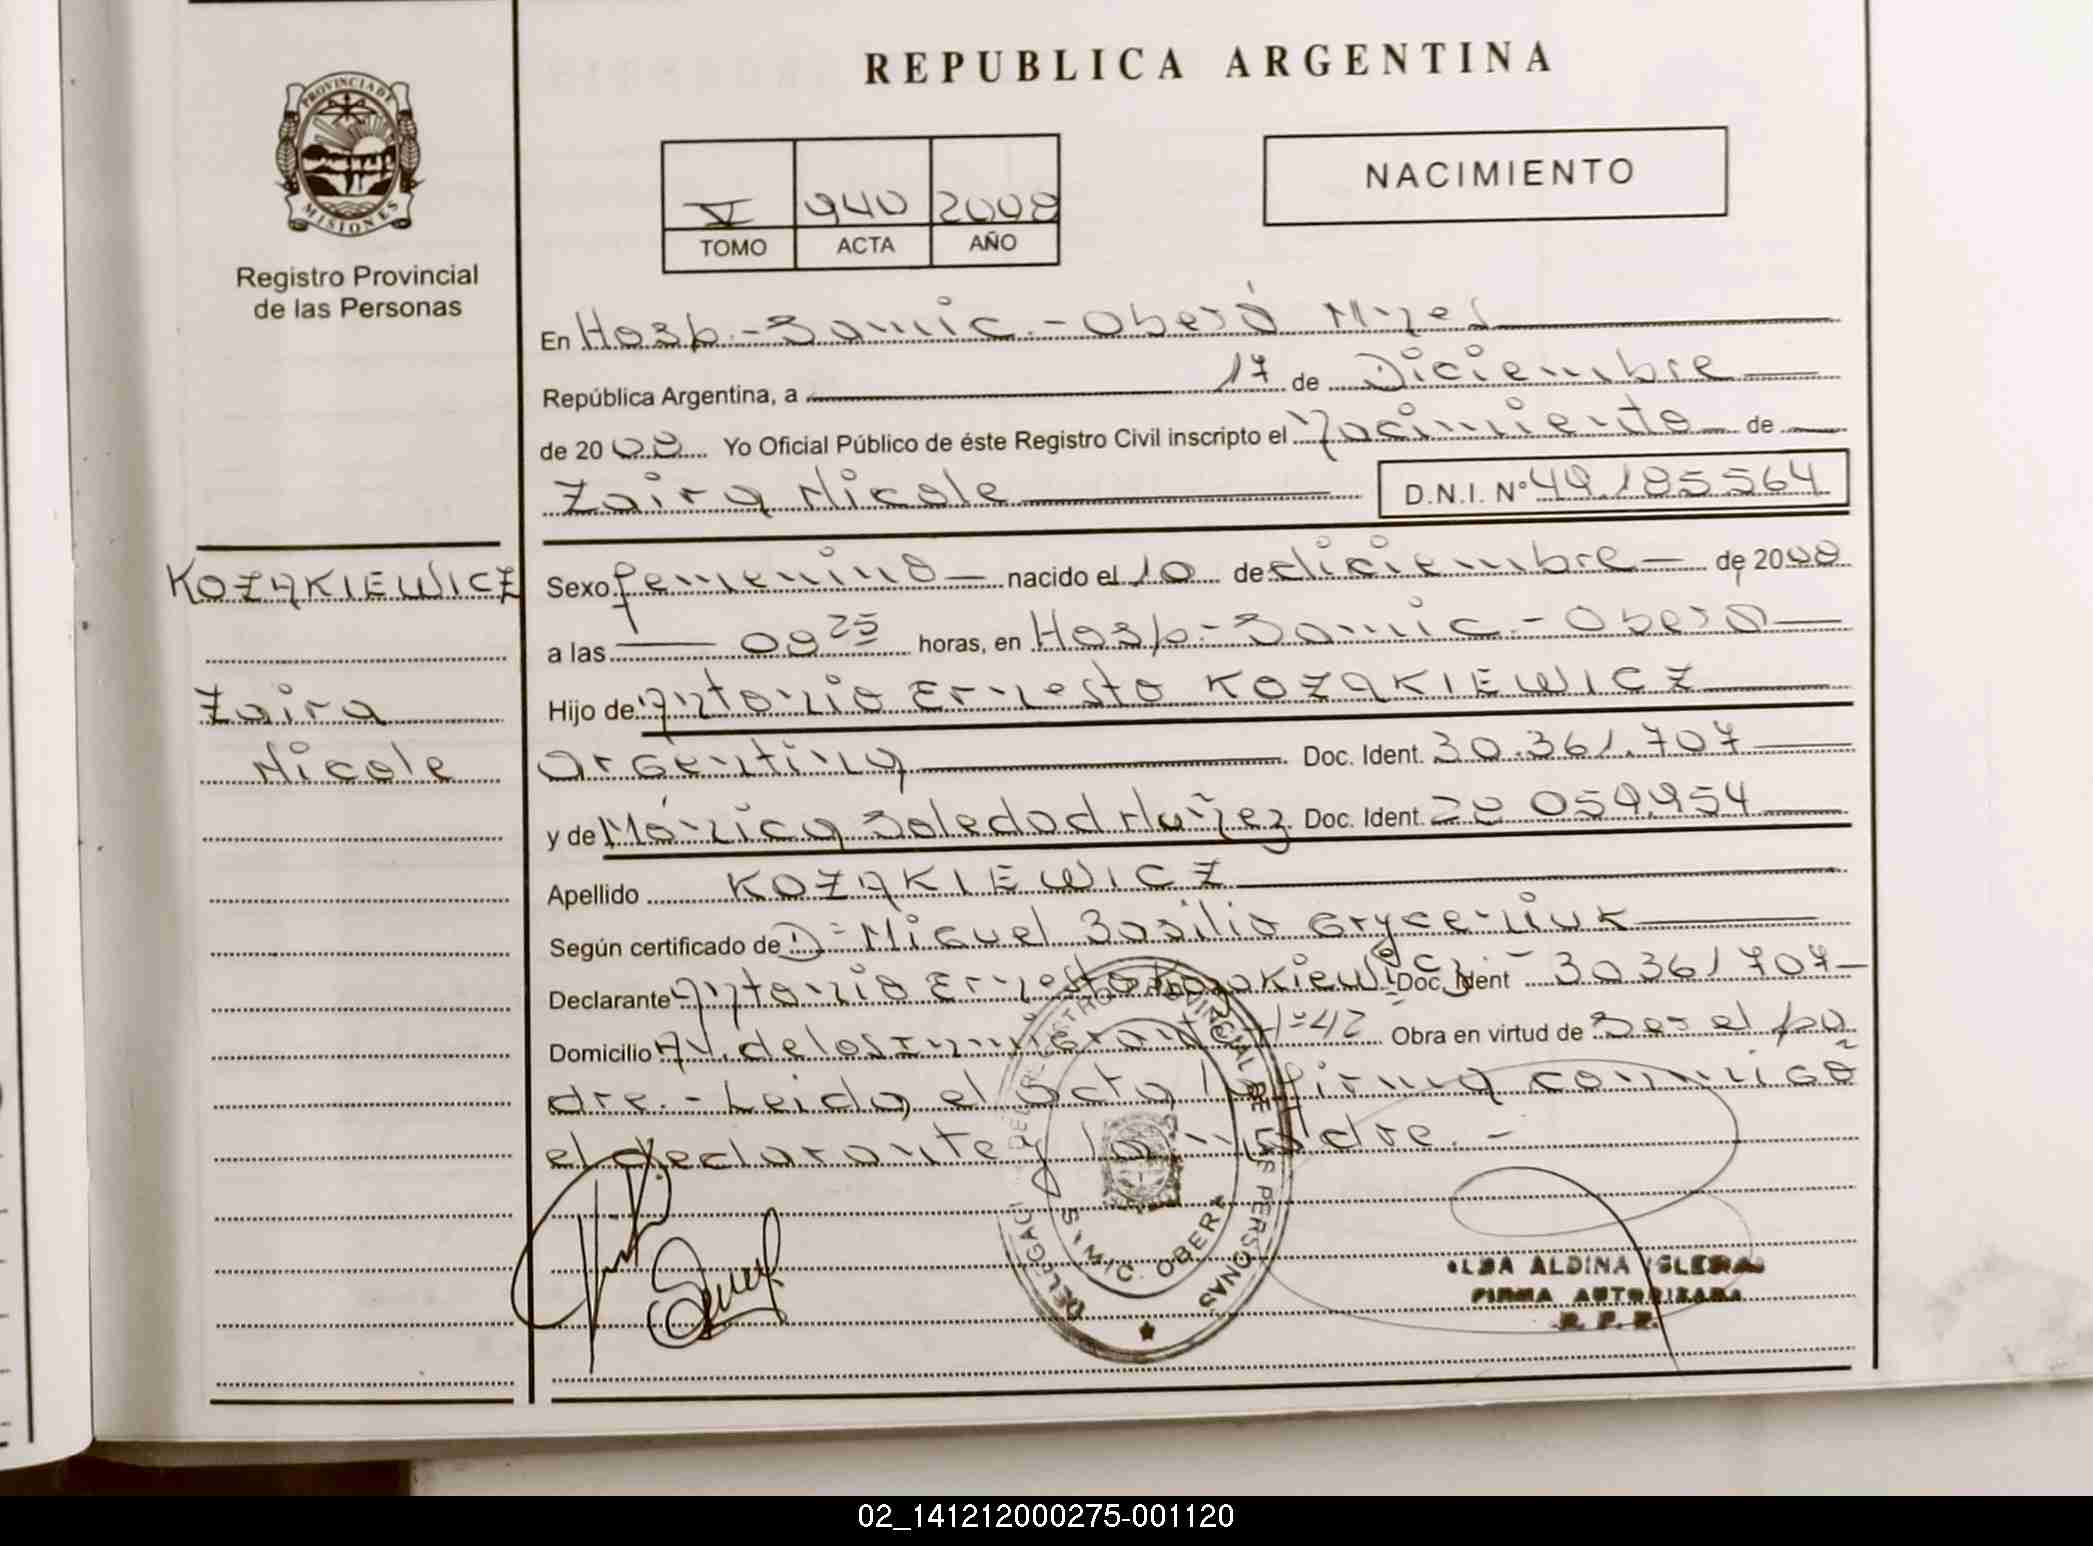 REPUBLICA ARGENTINA
PROVINCIA DE MISIONES
Registro Provincial
de las Personas
V 940 2008
TOMO ACTA AÑO
NACIMIENTO
En Hosp.-Samic.-Oberá Mnes
República Argentina, a 17 de Diciembre
de 2008 Yo Oficial Público de éste Registro Civil inscripto el Nacimiento de
Zaira Nicole D.N.I. N° 49.185.564
KOZAKIEWICZ
Zaira
Nicole
Sexo femenino nacido el 10 de diciembre de 2008
a las 08 25 horas, en Hosp-Samic.-Oberá
Hijo de Antonio Ernesto KOZAKIEWICZ
argentina Doc. Ident. 30.361.707
y de Mónica Soledad Nuñez Doc. Ident. 28 059.954
Apellido KOZAKIEWICZ
Según certificado de D= Miguel Basilio Gryceniuk
Declarante Antonio Ernesto Kozakiewicz.- Doc. Ident 30361707
Domicilio AV. de los Inmigrantes N=42 Obra en virtud de ser el pa
dre.- Leida el acta la firma conmigo
el declarante y la madre.-
REGISTRO PROVINCIAL DE LAS PERSONAS
ALDINA
FIRMA AUTORIZADA
R. P. P.
02_141212000275-001120